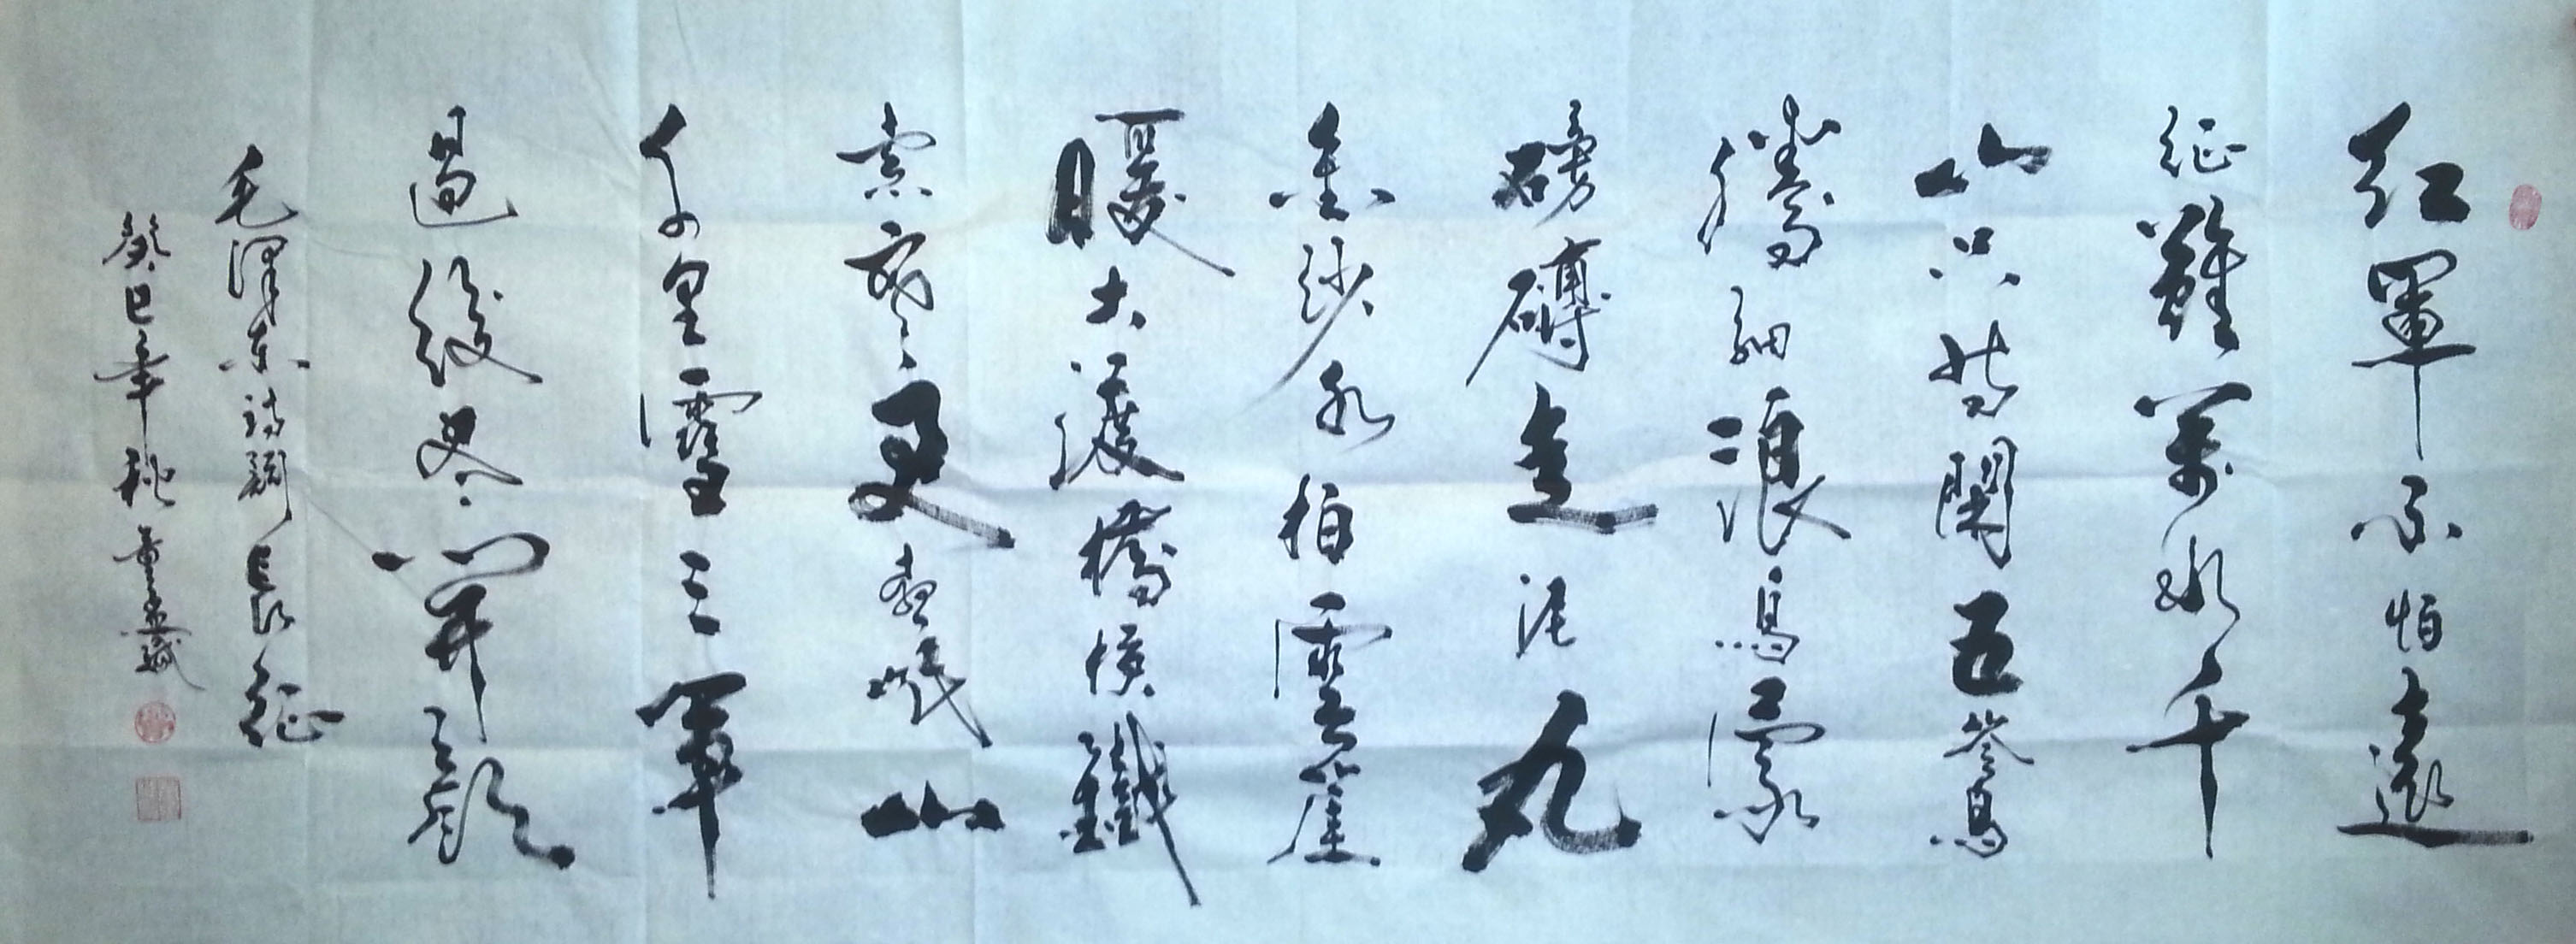 紅軍不怕遠
征難萬水千
山只等閑五
騰細浪烏蒙
磅礴走泥丸
金沙水拍雲崖
暖大渡橋橫鐵
索寒更喜岷山
千里雪三軍
過後盡開顏
毛澤東詩詞長征
癸巳年秋董